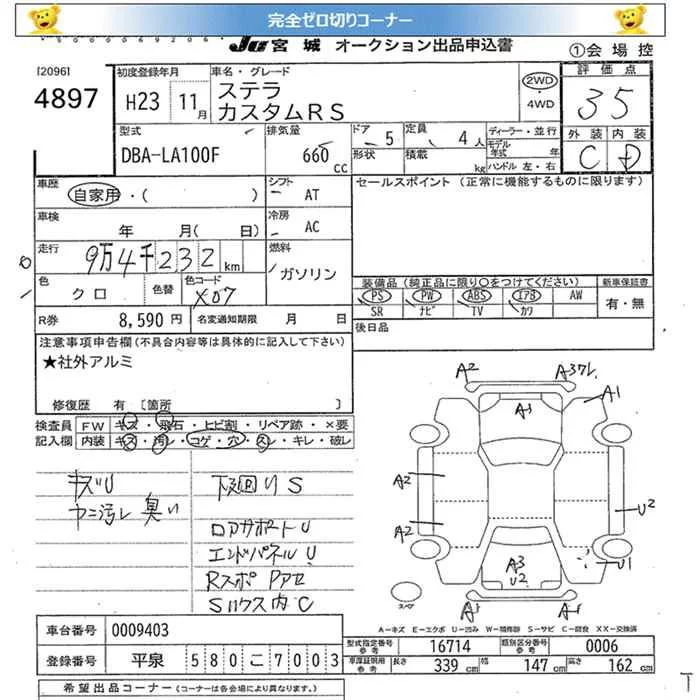 完全ゼロ切りコーナー
JU 宮城 オークション出品申込書
①会場控
[2096]
4897
初度登録年月
H23 11月
車名・グレード
ステラ
カスタムRS
2WD
・
4WD
評価点
3.5
外装 内装
C D
型式
DBA-LA100F
排気量
660 CC
ドア 5
形状
定員 4人
積載 kg
ディーラー・並行
モデル年式 年
ハンドル 左・右
車歴
自家用・( )
シフト
AT
セールスポイント (正常に機能するものに限ります)
車検
年 月( 日)
冷房
AC
走行
9万4千232km
燃料
ガソリン
色
クロ
色替
色コード
X07
装備品 (純正品に限り○をつけてください)
新車保証書
PS PW ABS エアB AW
SR ナビ TV カワ
有・無
R券 8,590円 名変通知期限 月 日
後日品
注意事項申告欄(不具合内容等は具体的に記入して下さい)
★社外アルミ
修復歴 有 [箇所 ]
検査員記入欄
FW キズ・飛石・ヒビ割・リペア跡・×要
内装 キズ・汚レ・コゲ・穴・スレ・キレ・破レ
キズU
ヤニ汚レ 臭い
下廻りS
ロアサポートU
エンドパネルU
RスポPアセ
Sハウス内C
A2
A1
A1
A2
A2
U2
A3
U2
U1
A1
A1
スペア
A-キズ E-エクボ U-凹み W-補修跡 S-サビ C-腐食 XX-交換済
車台番号 0009403
登録番号 平泉 580 こ 7003
型式指定番号 16714
類別区分番号 0006
車庫証明用参考 長さ 339cm 幅 147cm 高さ 162cm
希望出品コーナー (コーナーは各会場により異なります。)